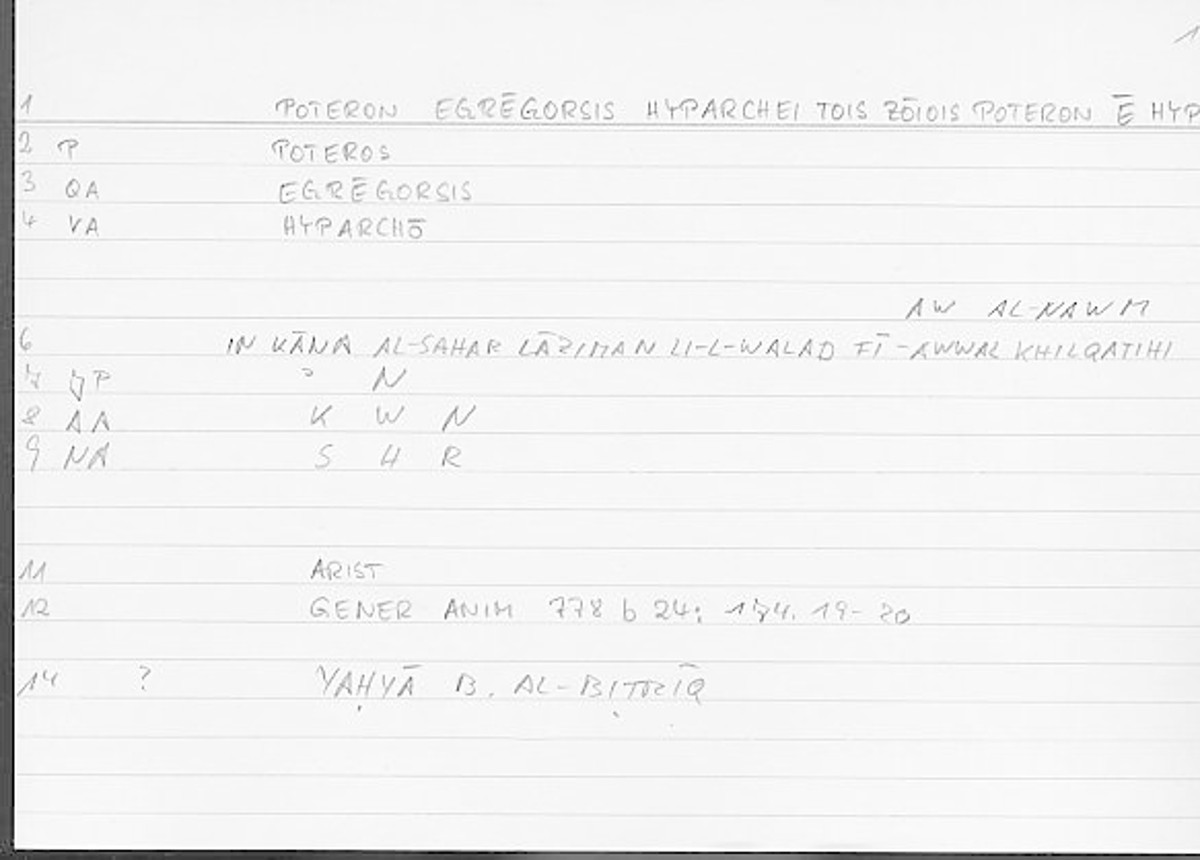 1
1 POTERON EGRĒGORSIS HYPARCHEI TOIS ZŌIOIS POTERON Ē HYP
2 P POTEROS
3 QA EGRĒGORSIS
4 VA HYPARCHŌ
AW AL-NAWM
6 IN KĀNA AL-SAHAR LĀZIMAN LI-L-WALAD FĪ -AWWAL KHILQATIHI
7 JP ʾ N
8 AA K W N
9 NA S H R
11 ARIST
12 GENER ANIM 778 b 24; 174. 19-20
14 ? YAḤYĀ B. AL-BIṬRĪQ